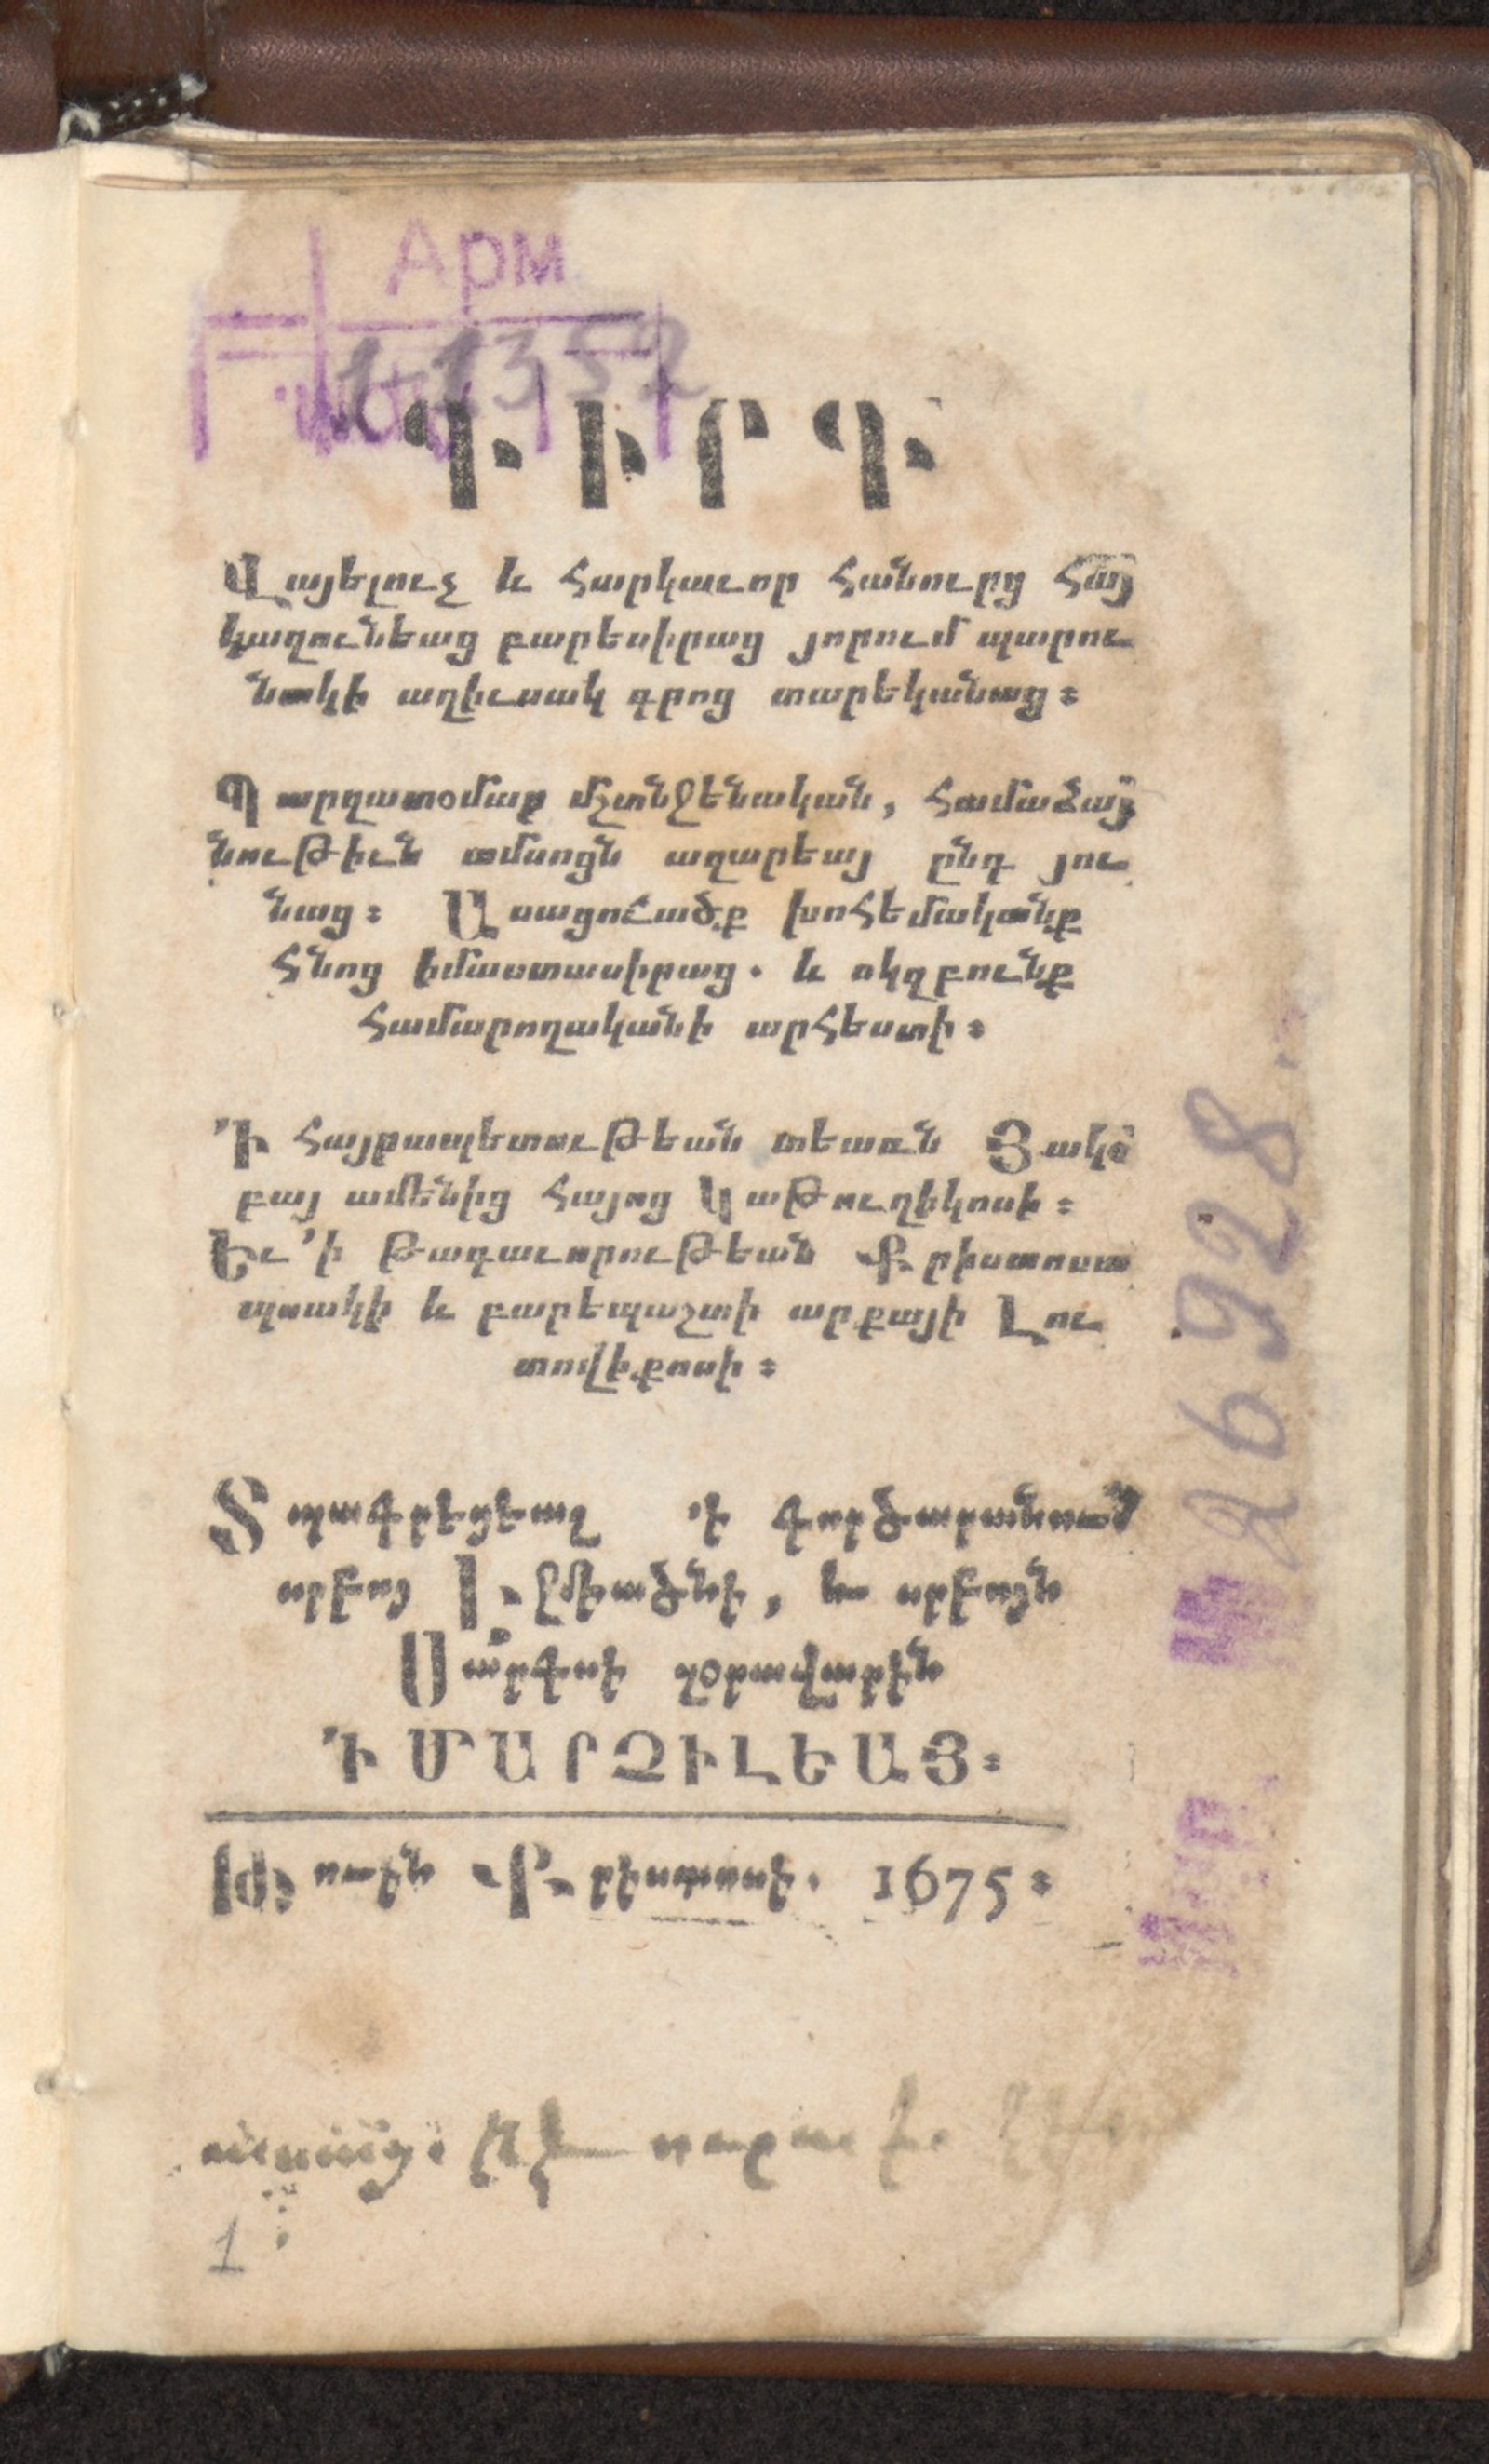 Арм
1-1352
ԳԻՐԳ
Վայելուչ և հարկաւոր հանուրց հայ
կազունեաց բարեսիրաց յորում պարու
նակի աղիւսակ գրոց տարեկանաց։
Պարզատօմար մշտնջենական, համաձայ
նութիւն ամսոցն ազարեայ ընդ յու
նաց։ Ասացուածք խոհեմականք
հնոց իմաստասիրաց. և սկզբունք
համարողականի արհեստի։
՚Ի հայրապետութեան տեառն Յակօ
բայ ամենից հայոց Կաթուղիկոսի։
Եւ ՚ի թագաւորութեան Քրիստոսա
պսակի և բարեպաշտի արքայի Լու
տովիքոսի։
Տպագրեցեալ ՚ի գործարանում
սրբոյ Էջմիածնի, և սրբոյն
Սարգսի զօրավարին
՚Ի ՄԱՐԶԻԼԵԱՅ։
Թուին Քրիստոսի. 1675։
26928
1